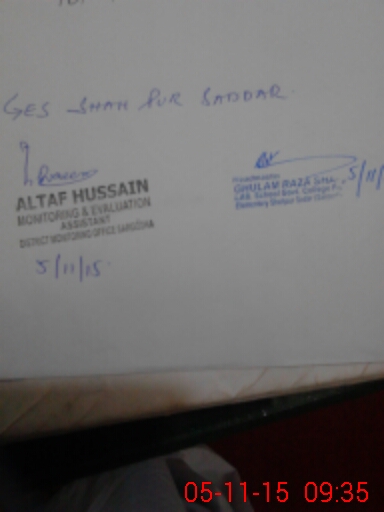 GES SHAH PUR SADDAR.
ALTAF HUSSAIN
MONITORING & EVALUATION
ASSISTANT
DISTRICT MONITORING OFFICE SARGODHA
5/11/15
GHULAM RAZA SHA
5/11/
05-11-15 09:35